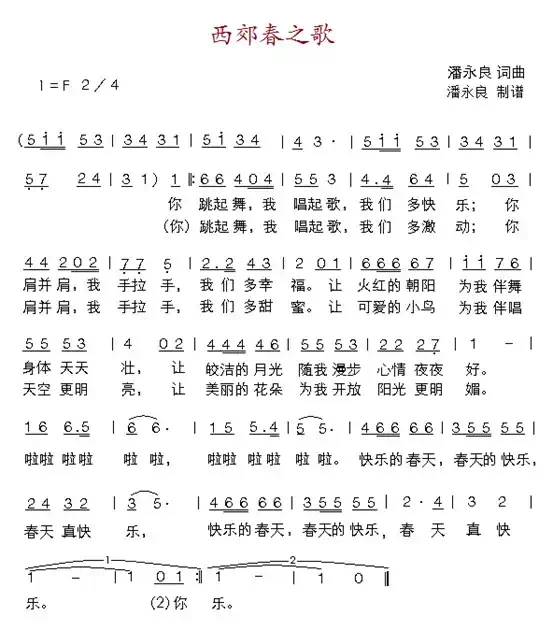 西郊春之歌
潘永良 词曲
1=F 2/4
潘永良 制谱
(5 i i 5 3 | 3 4 3 1 | 5 i 3 4 | 4 3 · | 5 i i 5 3 | 3 4 3 1 |
5 7 2 4 | 3 1 ) 1 ‖: 6 6 4 0 4 | 5 5 3 | 4. 4 6 4 | 5 0 3 |
你 跳起舞，我 唱起歌，我们 多快 乐；你
(你) 跳起舞，我 唱起歌，我们 多激 动；你
4 4 2 0 2 | 7 7 5 | 2. 2 4 3 | 2 0 1 | 6 6 6 6 7 | i i 7 6 |
肩并 肩，我 手拉 手，我们 多幸 福。让 火红的朝阳 为我 伴舞
肩并 肩，我 手拉 手，我们 多甜 蜜。让 可爱的小鸟 为我 伴唱
5 5 5 3 | 4 0 2 | 4 4 4 4 6 | 5 5 5 3 | 2 2 2 7 | 1 - |
身体 天天 壮，让 皎洁的月光 随我 漫步 心情 夜夜 好。
天空 更明 亮，让 美丽的花朵 为我 开放 阳光 更明 媚。
1 6 6. 5 | 6 6 · | 1 5 5. 4 | 5 5 · | 4 6 6 6 6 | 3 5 5 5 5 |
啦啦 啦啦 啦 啦， 啦啦 啦啦 啦 啦。 快乐的春天，春天的快乐，
2 4 3 2 | 3 5 · | 4 6 6 6 6 | 3 5 5 5 5 | 2 · 4 | 3 2 |
春天 真快 乐， 快乐的春天，春天的快乐，春 天 真 快
1 2
1 - | 1 0 1 :‖ 1 - | 1 0 ‖
乐。 (2)你 乐。